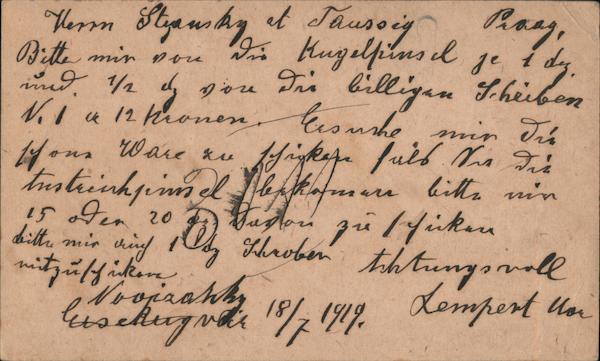 Herrn Stransky et Taussig Praag,
Bitte mir von die Kugelpinsel je 1 dz
und 1/2 dz von die billigen Scheiben
N. 1 a 12 Kronen. Ersuche mir die
schone Ware zu schicken falls Sie die
bekomen bitte mir
15 oder 20 davon zu schicken
bitte mir auch 1 dz
mitzuschicken Achtungsvoll
18/7 1919. Lempert